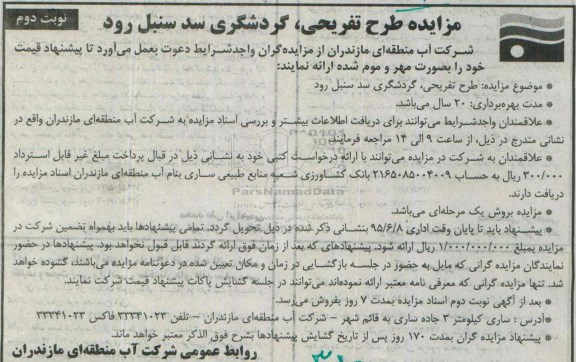 نوبت دوم
مزایده طرح تفریحی، گردشگری سد سنبل رود
شرکت آب منطقه‌ای مازندران از مزایده‌گران واجدشرایط دعوت بعمل می‌آورد تا پیشنهاد قیمت
خود را بصورت مهر و موم شده ارائه نمایند:
* موضوع مزایده: طرح تفریحی، گردشگری سد سنبل رود
* مدت بهره‌برداری: ۲۰ سال می‌باشد.
* علاقمندان واجدشرایط می‌توانند برای دریافت اطلاعات بیشتر و بررسی اسناد مزایده به شرکت آب منطقه‌ای مازندران واقع در
نشانی مندرج در ذیل، از ساعت ۹ الی ۱۴ مراجعه فرمایند.
* علاقمندان به شرکت در مزایده می‌توانند با ارائه درخواست کتبی خود به نشانی ذیل در قبال پرداخت مبلغ غیر قابل استرداد
۳۰۰/۰۰۰ ریال به حساب ۲۱۶۵۰۸۵۰۰۴۰۰۹ بانک کشاورزی شعبه منابع طبیعی ساری بنام آب منطقه‌ای مازندران اسناد مزایده را
دریافت دارند.
ParsNamadData
* مزایده بروش یک مرحله‌ای می‌باشد.
* پیشنهاد باید تا پایان وقت اداری ۹۵/۶/۸ بنشانی ذکر شده در ذیل تحویل گردد. تمامی پیشنهادها باید بهمراه تضمین شرکت در
مزایده بمبلغ ۱/۰۰۰/۰۰۰/۰۰۰ ریال ارائه شود. پیشنهادهای که بعد از زمان فوق ارائه گردند قابل قبول نخواهد بود. پیشنهادها در حضور
نمایندگان مزایده گرانی که مایل به حضور در جلسه بازگشایی در زمان و مکان تعیین شده در دعوتنامه مزایده می‌باشند، گشوده خواهد
شد. تنها مزایده گرانی که معرفی نامه معتبر ارائه نموده‌اند می‌توانند در جلسه گشایش پاکات پیشنهاد قیمت شرکت نمایند.
* بعد از آگهی نوبت دوم اسناد مزایده بمدت ۷ روز بفروش می‌رسد.
* آدرس: ساری کیلومتر ۳ جاده ساری به قائم شهر – شرکت آب منطقه‌ای مازندران – تلفن ۳۳۳۴۱۰۲۳ فاکس ۳۳۳۴۱۰۲۳
* پیشنهاد مزایده گران بمدت ۱۷۰ روز پس از تاریخ گشایش پیشنهادها بشرح فوق الذکر معتبر خواهد ماند.
روابط عمومی شرکت آب منطقه‌ای مازندران